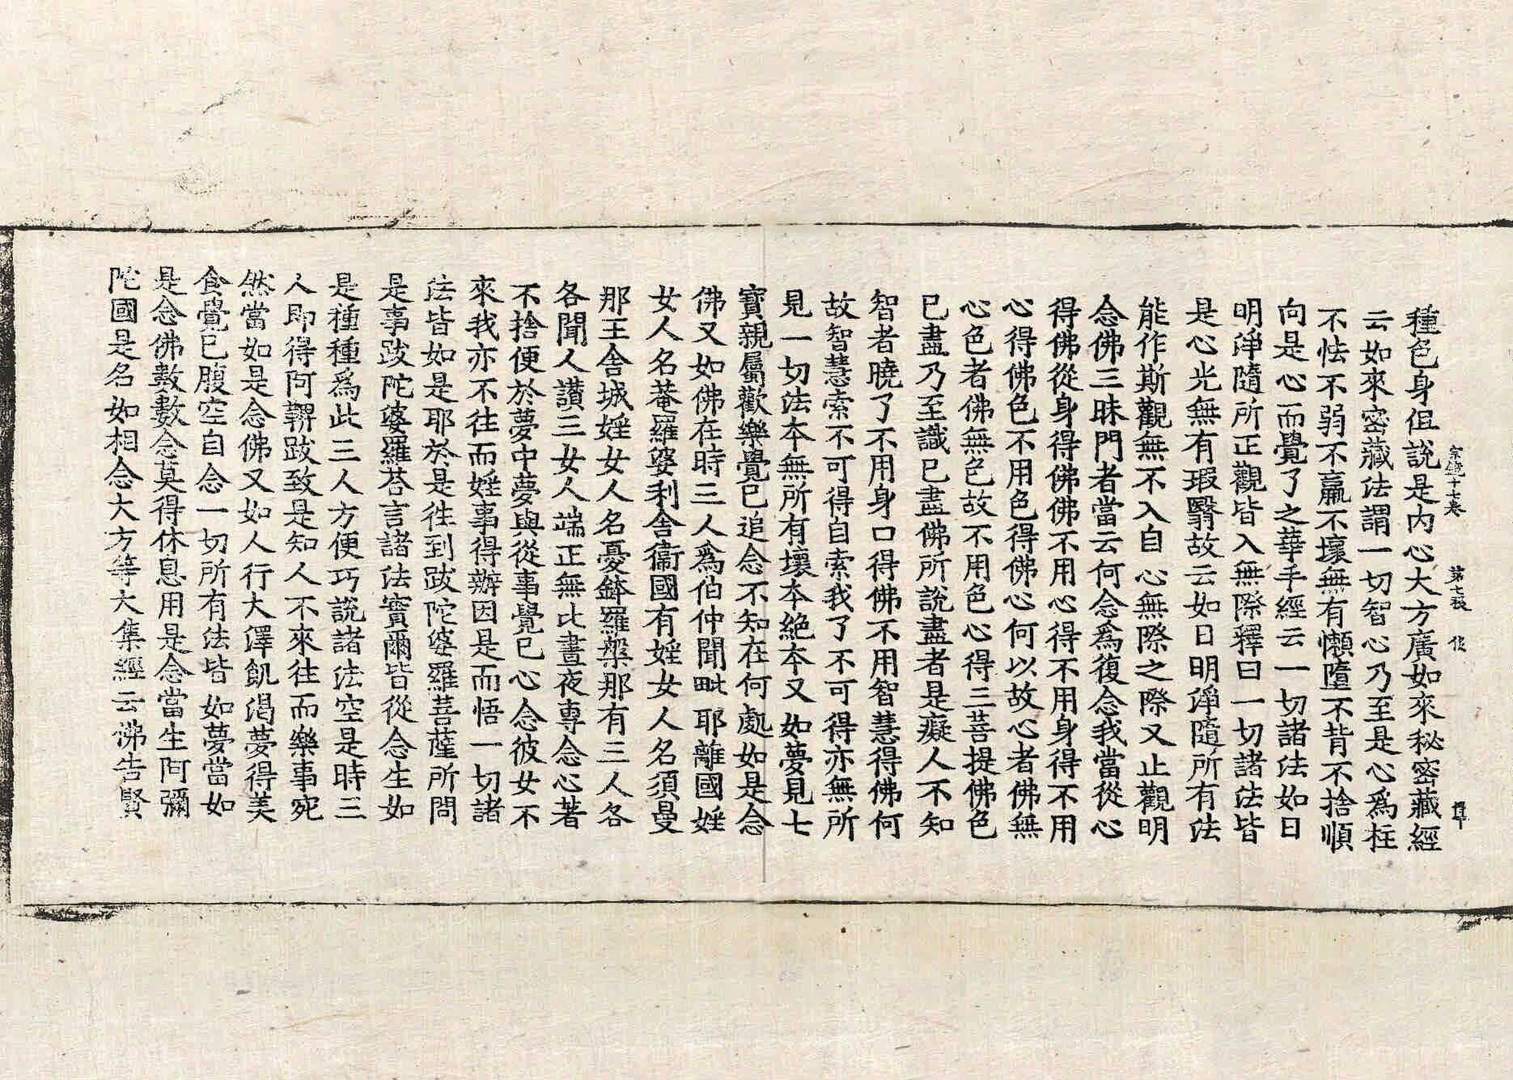 宗鏡十七卷　第七張　俊　譚單
種色身但說是內心大方廣如來秘密藏經
云如來密藏法謂一切智心乃至是心爲柱
不怯不弱不羸不壞無有懶墮不背不捨順
向是心而覺了之華手經云一切諸法如日
明淨隨所正觀皆入無際釋曰一切諸法皆
是心光無有瑕翳故云如日明淨隨所有法
能作斯觀無不入自心無際之際又止觀明
念佛三昧門者當云何念爲復念我當從心
得佛從身得佛佛不用心得不用身得不用
心得佛色不用色得佛心何以故心者佛無
心色者佛無色故不用色心得三菩提佛色
已盡乃至識已盡佛所說盡者是癡人不知
智者曉了不用身口得佛不用智慧得佛何
故智慧索不可得自索我了不可得亦無所
見一切法本無所有壞本絶本又如夢見七
寶親屬歡樂覺已追念不知在何處如是念
佛又如佛在時三人爲伯仲聞毗耶離國婬
女人名菴羅婆利舍衞國有婬女人名須曼
那王舍城婬女人名憂鉢羅槃那有三人各
各聞人讚三女人端正無比晝夜專念心著
不捨便於夢中夢與從事覺已心念彼女不
來我亦不往而婬事得辦因是而悟一切諸
法皆如是耶於是往到跋陀婆羅菩薩所問
是事跋陀婆羅荅言諸法實爾皆從念生如
是種種爲此三人方便巧說諸法空是時三
人即得阿鞞跋致是知人不來往而樂事宛
然當如是念佛又如人行大澤飢渴夢得美
食覺已腹空自念一切所有法皆如夢當如
是念佛數數念莫得休息用是念當生阿彌
陀國是名如相念大方等大集經云佛告賢